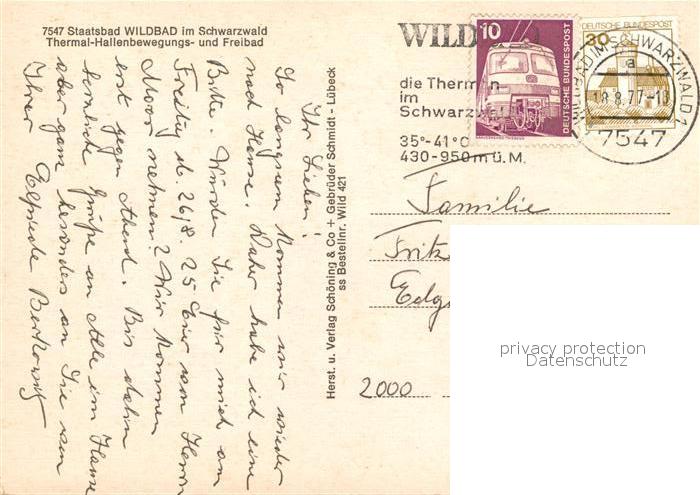 7547 Staatsbad WILDBAD im Schwarzwald
Thermal-Hallenbewegungs- und Freibad
Ihr Lieben!
So langsam kommen wir wieder
nach Hause. Daher habe ich eine
Bitte. Würden Sie für mich am
Freitag d. 26/8. 25 Eier von Herrn
Moor nehmen? Wir kommen
erst gegen Abend. Bis dahin
herzliche Grüße an Alle im Hause
aber ganz besonders an Sie von
Ihrer Elfriede Berkowitz
Herst. u. Verlag Schöning & Co + Gebrüder Schmidt - Lübeck
ss Bestellnr. Wild 421
WILDBAD
die Thermen
im
Schwarzwald
35°-41°C
430-950m ü. M.
10
DEUTSCHE BUNDESPOST
DEUTSCHE BUNDESPOST
30
WILDBAD IM SCHWARZWALD 1
a
18.8.77-18
7547
Familie
Fritz
Edg
2000
privacy protection
Datenschutz